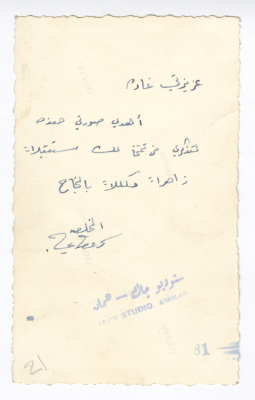 عزيزتي غادة
أهدي صورتي هذه
لتذكري من تتمنى لك مستقبلاً
زاهراً مكللاً بالنجاح
المخلصة
ستوديو جاك - عمان
STUDIO AMMAN
81
21